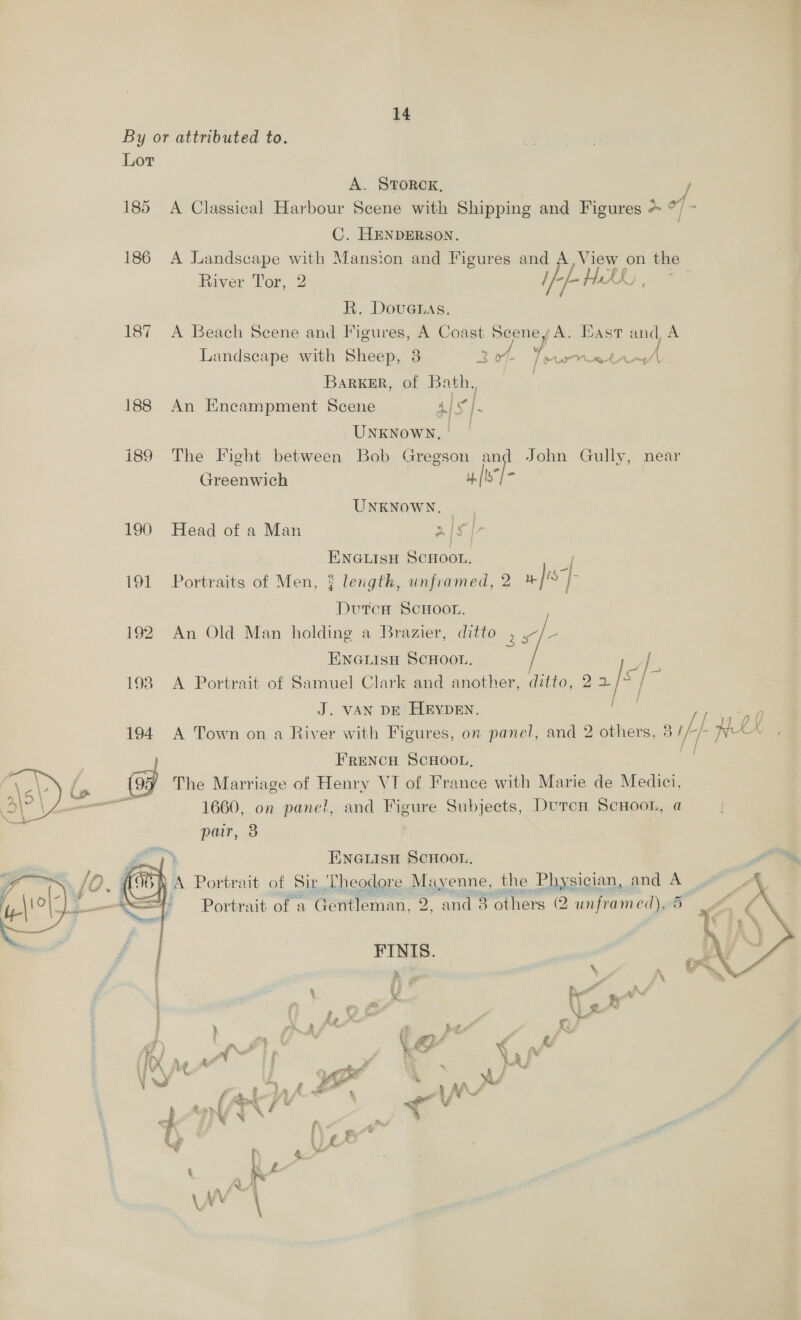 14
By or attributed to.
Lot
A. Storck,
185 A Classical Harbour Scene with Shipping and Figures
C. Henderson.
186 A Landscape with Mansion and Figures and A View on the
River Tor, 2 1/-/- Hill
R. Douglas.
187 A Beach Scene and Figures, A Coast Scene, A. East and A
Landscape with Sheep, 3
Barker, of Bath,
188 An Encampment Scene 4/5/-
Unknown,
189 The Fight between Bob Gregson and John Gully, near
Greenwich 4/15/-
Unknown.
190 Head of a Man 2/5/-
English School.
191 Portraits of Men, ¾ length, unframed, 2 4/15/-
Dutch School.
192 An Old Man holding a Brazier, ditto
English School.
193 A Portrait of Samuel Clark and another, ditto, 2 2/5/-
J. van de Heyden.
194 A Town on a River with Figures, on panel, and 2 others, 3 1/-/- Hill
French School,
195 The Marriage of Henry VI of France with Marie de Medici,
1660, on panel, and Figure Subjects, Dutch School, a
pair, 3
English School.
10. 196 A Portrait of Sir Theodore Mayenne, the Physician, and A
4/10/- Portrait of a Gentleman, 2, and 3 others (2 unframed), 5
FINIS.